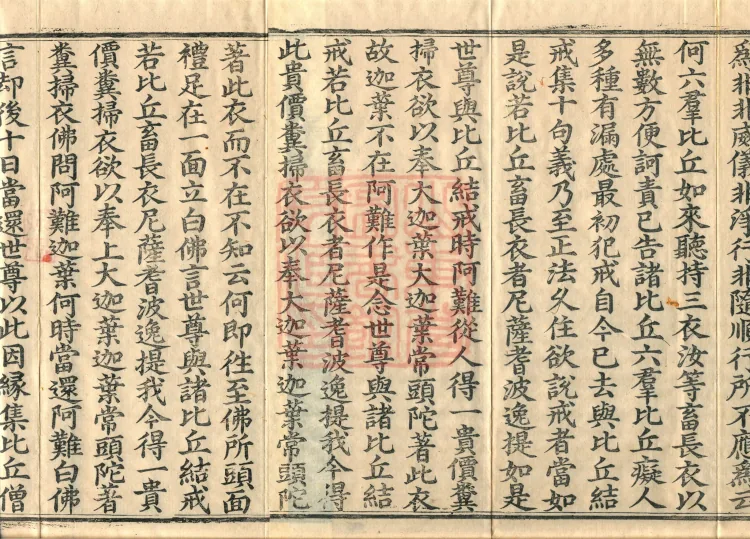 爲非非威儀非淨行非隨順行所不應爲云
何六羣比丘如來聽持三衣汝等畜長衣以
無數方便訶責已告諸比丘六羣比丘癡人
多種有漏處最初犯戒自今已去與比丘結
戒集十句義乃至正法久住欲說戒者當如
是說若比丘畜長衣者尼薩耆波逸提如是
世尊與比丘結戒時阿難從人得一貴價糞
掃衣欲以奉大迦葉大迦葉常頭陀著此衣
故迦葉不在阿難作是念世尊與諸比丘結
戒若比丘畜長衣者尼薩耆波逸提我今得
此貴價糞掃衣欲以奉大迦葉迦葉常頭陀
著此衣而不在不知云何即往至佛所頭面
禮足在一面立白佛言世尊與諸比丘結戒
若比丘畜長衣尼薩耆波逸提我今得一貴
價糞掃衣欲以奉上大迦葉迦葉常頭陀著
糞掃衣佛問阿難迦葉何時當還阿難白佛
言却後十日當還世尊以此因緣集比丘僧